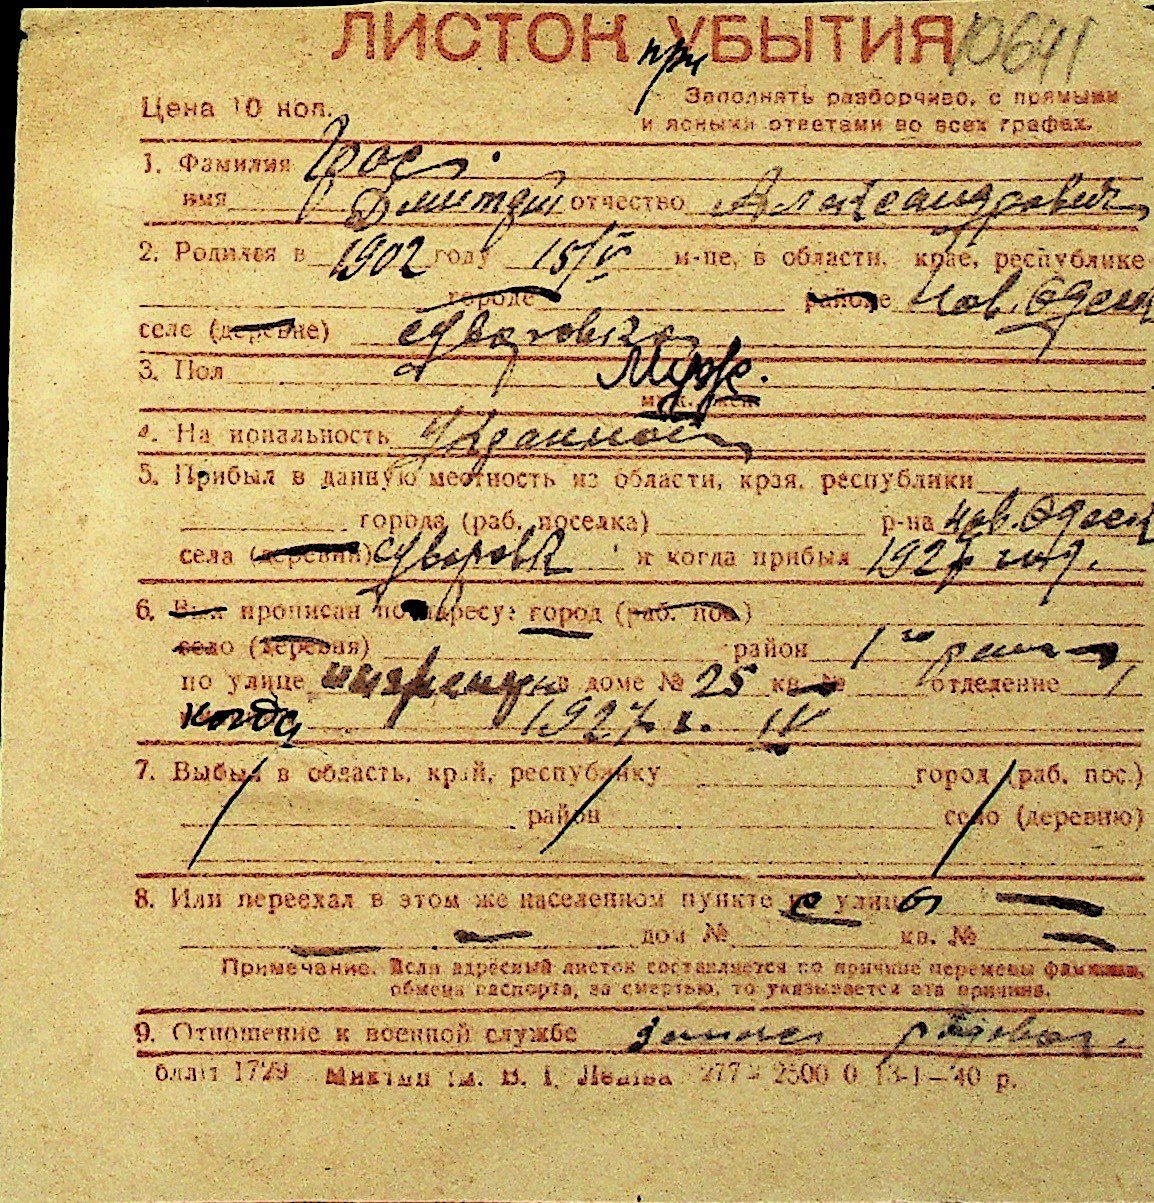 ЛИСТОК УБЫТИЯ 10641
при
Цена 10 коп. Заполнять разборчиво, с прямыми
и ясными ответами во всех графах.
1. Фамилия
имя Дмитрий отчество Александрович
2. Родился в 1902 году 15/V м-це, в области, крае, республике
городе районе Нов. Одесск
селе (деревне)
3. Пол Муж.
муж. жен.
4. Национальность
5. Прибыл в данную местность из области, края, республики
города (раб. поселка) р-на Нов. Одесск
села (деревни) Суворовка и когда прибыл 1927 год.
6. Был прописан по адресу: город (раб. пос.)
село (деревня) район 1го
по улице в доме № 25 кв. № отделение
когда 1927 г. IV
7. Выбыл в область, край, республику город (раб. пос.)
район село (деревню)
8. Или переехал в этом же населенном пункте с улицы
дом № кв. №
Примечание. Если адресный листок составляется по причине перемены фамилии,
обмена паспорта, за смертью, то указывается эта причина.
9. Отношение к военной службе рядовой.
1729 Ленина 2500 0 13-1—40 р.